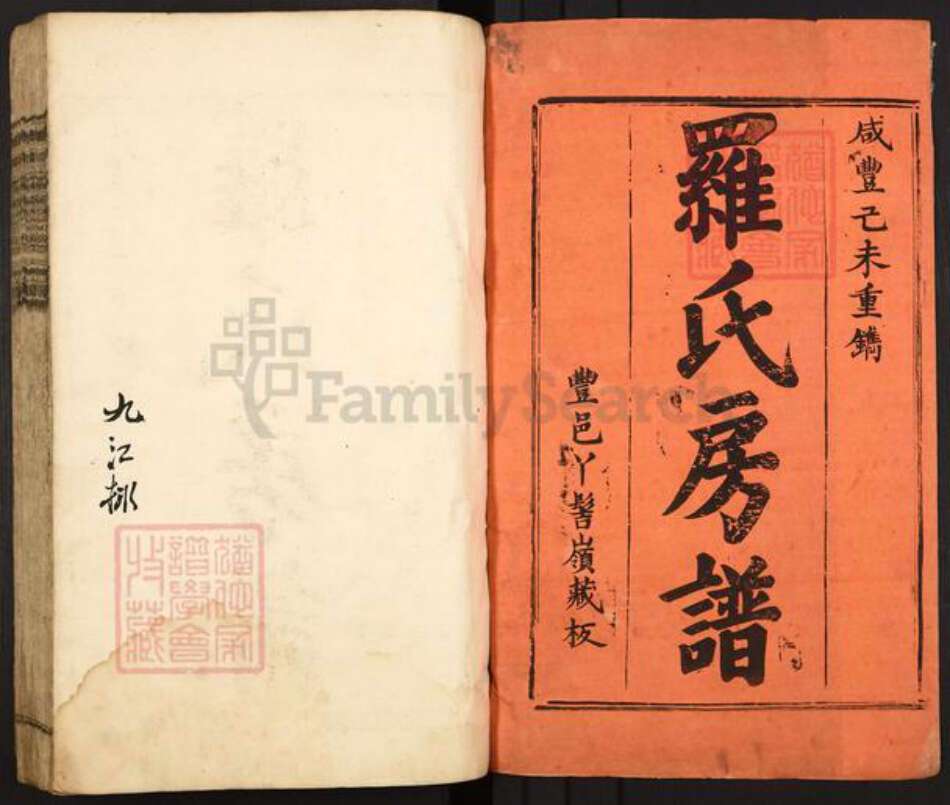 咸豐己未重鐫
羅氏房譜
豐邑丫髻嶺藏板
九江
譜學會
收藏
FamilySearch